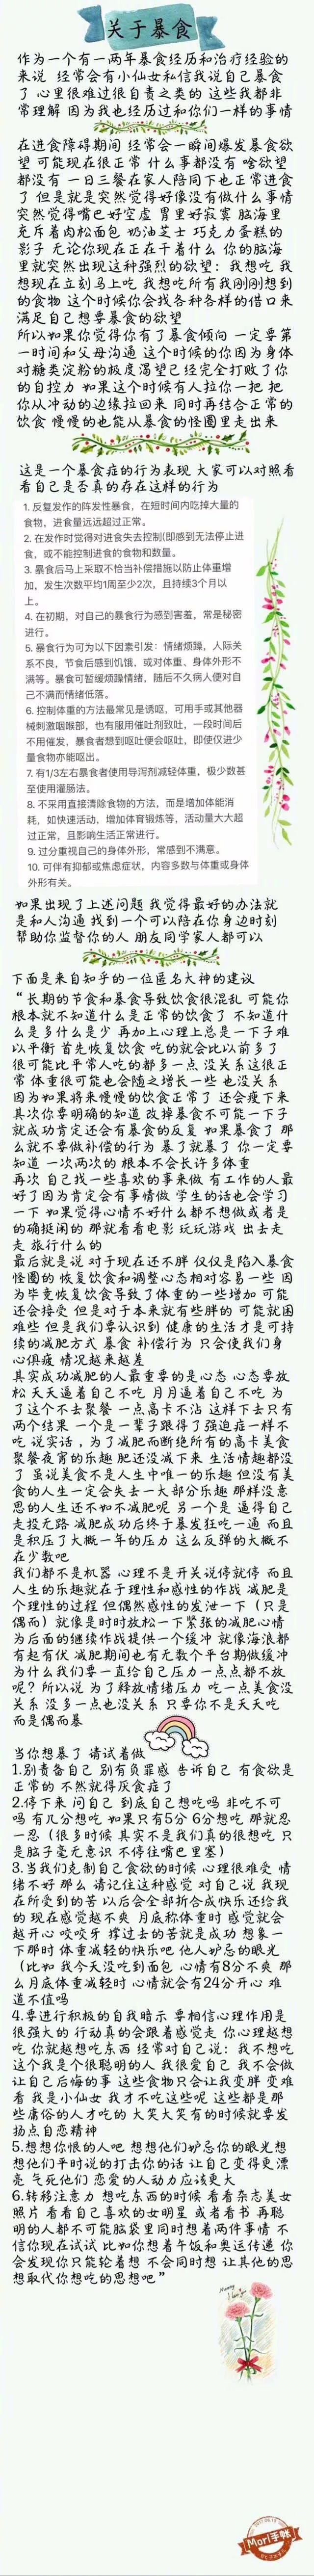 关于暴食
作为一个有一两年暴食经历和治疗经验的
来说 经常会有小仙女私信我说自己暴食
了 心里很难过很自责之类的 这些我都非
常理解 因为我也经历过和你们一样的事情
在进食障碍期间 经常会一瞬间爆发暴食欲
望 可能现在很正常 什么事都没有 啥欲望
都没有 一日三餐在家人陪同下也正常进食
了 但是就是突然觉得好像没有做什么事情
突然觉得嘴巴好空虚 胃里好寂寞 脑海里
充斥着肉松面包 奶油芝士 巧克力蛋糕的
影子 无论你现在正在干着什么 你的脑海
里就突然出现这种强烈的欲望：我想吃 我
想现在立刻马上吃 我想吃所有我刚刚想到
的食物 这个时候你会找各种各样的借口来
满足自己想要暴食的欲望
所以如果你觉得你有了暴食倾向 一定要第
一时间和父母沟通 这个时候的你因为身体
对糖类淀粉的极度渴望已经完全打败了你
的自控力 如果这个时候有人拉你一把 把
你从冲动的边缘拉回来 同时再结合正常的
饮食 慢慢的也能从暴食的怪圈里走出来
这是一个暴食症的行为表现 大家可以对照看
看自己是否真的存在这样的行为
1. 反复发作的阵发性暴食，在短时间内吃掉大量的
食物，进食量远远超过正常。
2. 在发作时觉得对进食失去控制(即感到无法停止进
食，或不能控制进食的食物和数量。
3. 暴食后马上采取不恰当补偿措施以防止体重增
加，发生次数平均1周至少2次，且持续3个月以
上。
4. 在初期，对自己的暴食行为感到害羞，常是秘密
进行。
5. 暴食行为可为以下因素引发：情绪烦躁，人际关
系不良，节食后感到饥饿，或对体重、身体外形不
满等。暴食可暂缓烦躁情绪，随后不久病人便对自
己不满而情绪低落。
6. 控制体重的方法最常见是诱呕，可用手或其他器
械刺激咽喉部，也有服用催吐剂致吐，一段时间后
不用催发，暴食者想到呕吐便会呕吐，即使仅进少
量食物亦能呕出。
7. 有1/3左右暴食者使用导泻剂减轻体重，极少数甚
至使用灌肠法。
8. 不采用直接清除食物的方法，而是增加体能消
耗，如快速活动，增加体育锻炼等，活动量大大超
过正常，且影响生活正常进行。
9. 过分重视自己的身体外形，常感到不满意。
10. 可伴有抑郁或焦虑症状，内容多数与体重或身体
外形有关。
如果出现了上述问题 我觉得最好的办法就
是和人沟通 找到一个可以陪在你身边时刻
帮助你监督你的人 朋友同学家人都可以
下面是来自知乎的一位匿名大神的建议
“长期的节食和暴食导致饮食很混乱 可能你
根本就不知道什么是正常的饮食了 不知道什
么是多什么是少 再加上心理上总是一下子难
以平衡 首先恢复饮食 吃的就会比以前多了
很可能比平常人吃的都多一点 没关系这很正
常 体重很可能也会随之增长一些 也没关系
因为如果将来慢慢的饮食正常了 还会瘦下来
其次你要明确的知道 改掉暴食不可能一下子
就成功肯定还会有暴食的反复 如果暴食了 那
么就不要做补偿的行为 暴了就暴了 你一定要
知道 一次两次的 根本不会长许多体重
再次 自己找一些喜欢的事来做 有工作的人最
好了因为肯定会有事情做 学生的话也会学习
一下 如果觉得心情不好什么都不想做或者是
的确挺闲的 那就看看电影 玩玩游戏 出去走
走 旅行什么的
最后就是说 对于现在还不胖 仅仅是陷入暴食
怪圈的 恢复饮食和调整心态相对容易一些 因
为毕竟恢复饮食导致了体重的一些增加 可能
还会接受 但是对于本来就有些胖的 可能就困
难些 但是我们要认识到 健康的生活才是可持
续的减肥方式 暴食 补偿行为 只会使我们身
心俱疲 情况越来越差
其实成功减肥的人最重要的是心态 心态要放
松 天天逼着自己不吃 月月逼着自己不吃 为
了这个不去聚餐 一点高卡不沾 这样下去只有
两个结果 一个是一辈子跟得了强迫症一样不
吃 说实话，为了减肥而断绝所有的高卡美食
聚餐夜宵的乐趣 肥还没减下来 生活情趣都没
了 虽说美食不是人生中唯一的乐趣 但没有美
食的人生一定会失去一大部分乐趣 那样没意
思的人生还不如不减肥呢 另一个是 逼得自己
走投无路 减肥成功后终于暴发狂吃一通 而且
是积压了大概一年的压力 这么反弹的大概不
在少数吧
我们都不是机器 心理不是开关说停就停 而且
人生的乐趣就在于理性和感性的作战 减肥是
个理性的过程 但偶然感性的发泄一下（只是
偶而）就像是时时放松一下紧张的减肥心情
为后面的继续作战提供一个缓冲 就像海浪都
有起有伏 减肥期间也有无数个平台期做缓冲
为什么我们要一直给自己压力一点点都不放
呢？所以说 为了释放情绪压力 吃一点美食没
关系 没多一点也没关系 只要你不是天天吃
而是偶而暴
当你想暴了 请试着做
1.别责备自己 别有负罪感 告诉自己 有食欲是
正常的 不然就得厌食症了
2.停下来 问自己 到底自己想吃吗 非吃不可
吗 有几分想吃 如果只有5分 6分想吃 那就忍
一忍（很多时候 其实不是我们真的很想吃 只
是脑子毫无意识 不停往嘴巴里塞）
3.当我们克制自己食欲的时候 心理很难受 情
绪不好 那么 请记住这种感觉 对自己说 我现
在所受到的苦 以后会全部折合成快乐还给我
的 现在感觉越不爽 月底称体重时 感觉就会
越开心 咬咬牙 撑过去的苦就是成功 想象一
下那时 体重减轻的快乐吧 他人妒忌的眼光
（比如 我今天没吃到面包 心情有8分不爽 那
么月底体重减轻时 心情就会有24分开心 难
道不值吗
4.要进行积极的自我暗示 要相信心理作用是
很强大的 行动真的会跟着感觉走 你心理越想
吃 你就越想吃东西 经常对自己说：我不想吃
这个我是个很聪明的人 我很爱自己 我不会做
让自己后悔的事 这些食物只会让我变胖 变难
看 我是小仙女 我才不吃这些呢 这些都是那
些庸俗的人才吃的 大笑大笑有的时候就要发
扬点自恋精神
5.想想你恨的人吧 想想他们妒忌你的眼光想
想他们平时说的打击你的话 让自己变得更漂
亮 气死他们 恋爱的人动力应该更大
6.转移注意力 想吃东西的时候 看看杂志美女
照片 看看自己喜欢的女明星 或者看书 再聪
明的人都不可能脑袋里同时想着两件事情 不
信你现在试试 比如你想着午饭和奥运传递 你
会发现你只能轮着想 不会同时想 让其他的思
想取代你想吃的思想吧”
Mori手帐